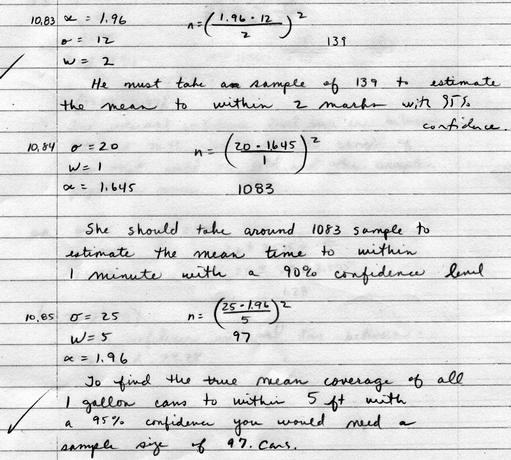 10.83 α = 1.96 n = (1.96 · 12 / 2)²
σ = 12 139
w = 2
He must take a sample of 139 to estimate
the mean to within 2 marks with 95%
confidence.
10.84 σ = 20 n = (20 · 1.645 / 1)²
W = 1
α = 1.645 1083
She should take around 1083 sample to
estimate the mean time to within
1 minute with a 90% confidence level
10.85 σ = 25 n = (25 · 1.96 / 5)²
W = 5 97
α = 1.96
To find the true mean coverage of all
1 gallon cans to within 5 ft with
a 95% confidence you would need a
sample size of 97. Cans.